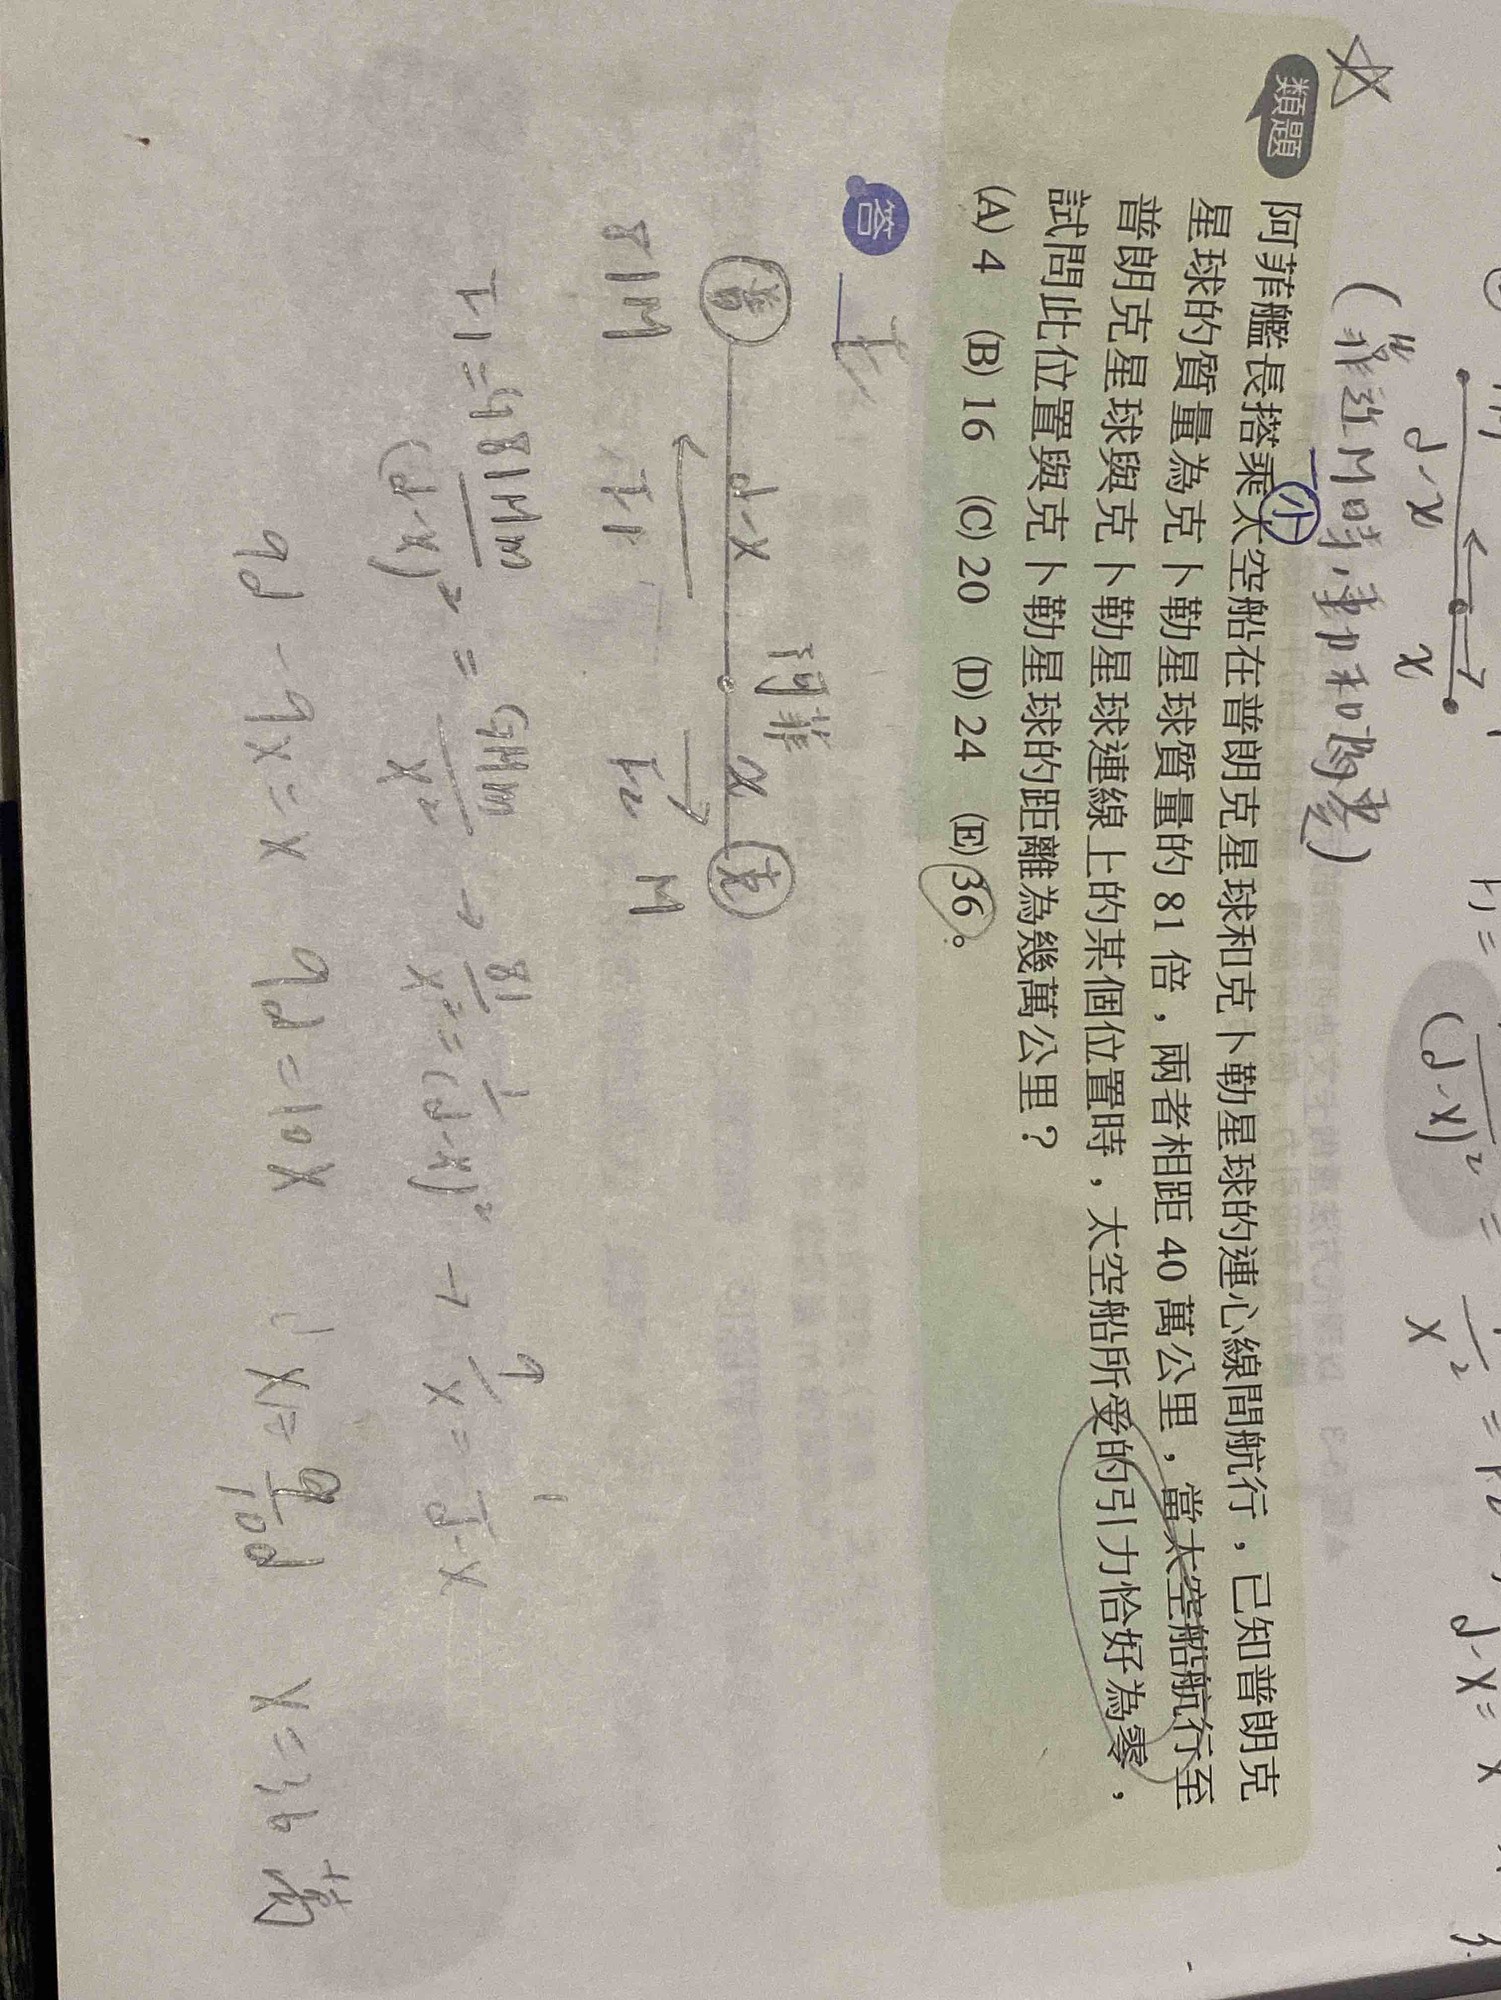 d-x x
(d-x)² = x²
(靠近M時,重力和為零)
類題 阿菲艦長搭乘太空船在普朗克星球和克卜勒星球的連心線間航行,已知普朗克
小
星球的質量為克卜勒星球質量的 81 倍,兩者相距 40 萬公里,當太空船航行至
普朗克星球與克卜勒星球連線上的某個位置時,太空船所受的引力恰好為零,
試問此位置與克卜勒星球的距離為幾萬公里?
(A) 4 (B) 16 (C) 20 (D) 24 (E) 36。
答 E
阿菲
普 d-x x 克
81M F1 F2 M
F1 = G81Mm/(d-x)² = GMm/x² → 81/x² = 1/(d-x)² → 9/x = 1/d-x
9d - 9x = x 9d = 10x x = 9/10 d x = 36 萬